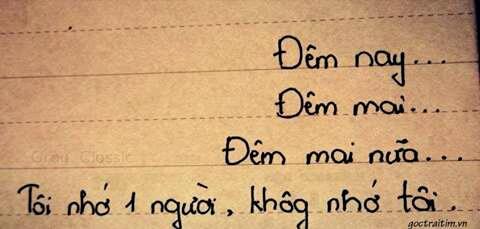 Đêm nay...
Đêm mai...
Gray Classic
Đêm mai nữa...
Tôi nhớ 1 người, khôg nhớ tôi.
goctraitim.vn